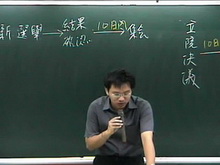 新選舉 → 結果確認 10日內→ 集會
立院決議 10日